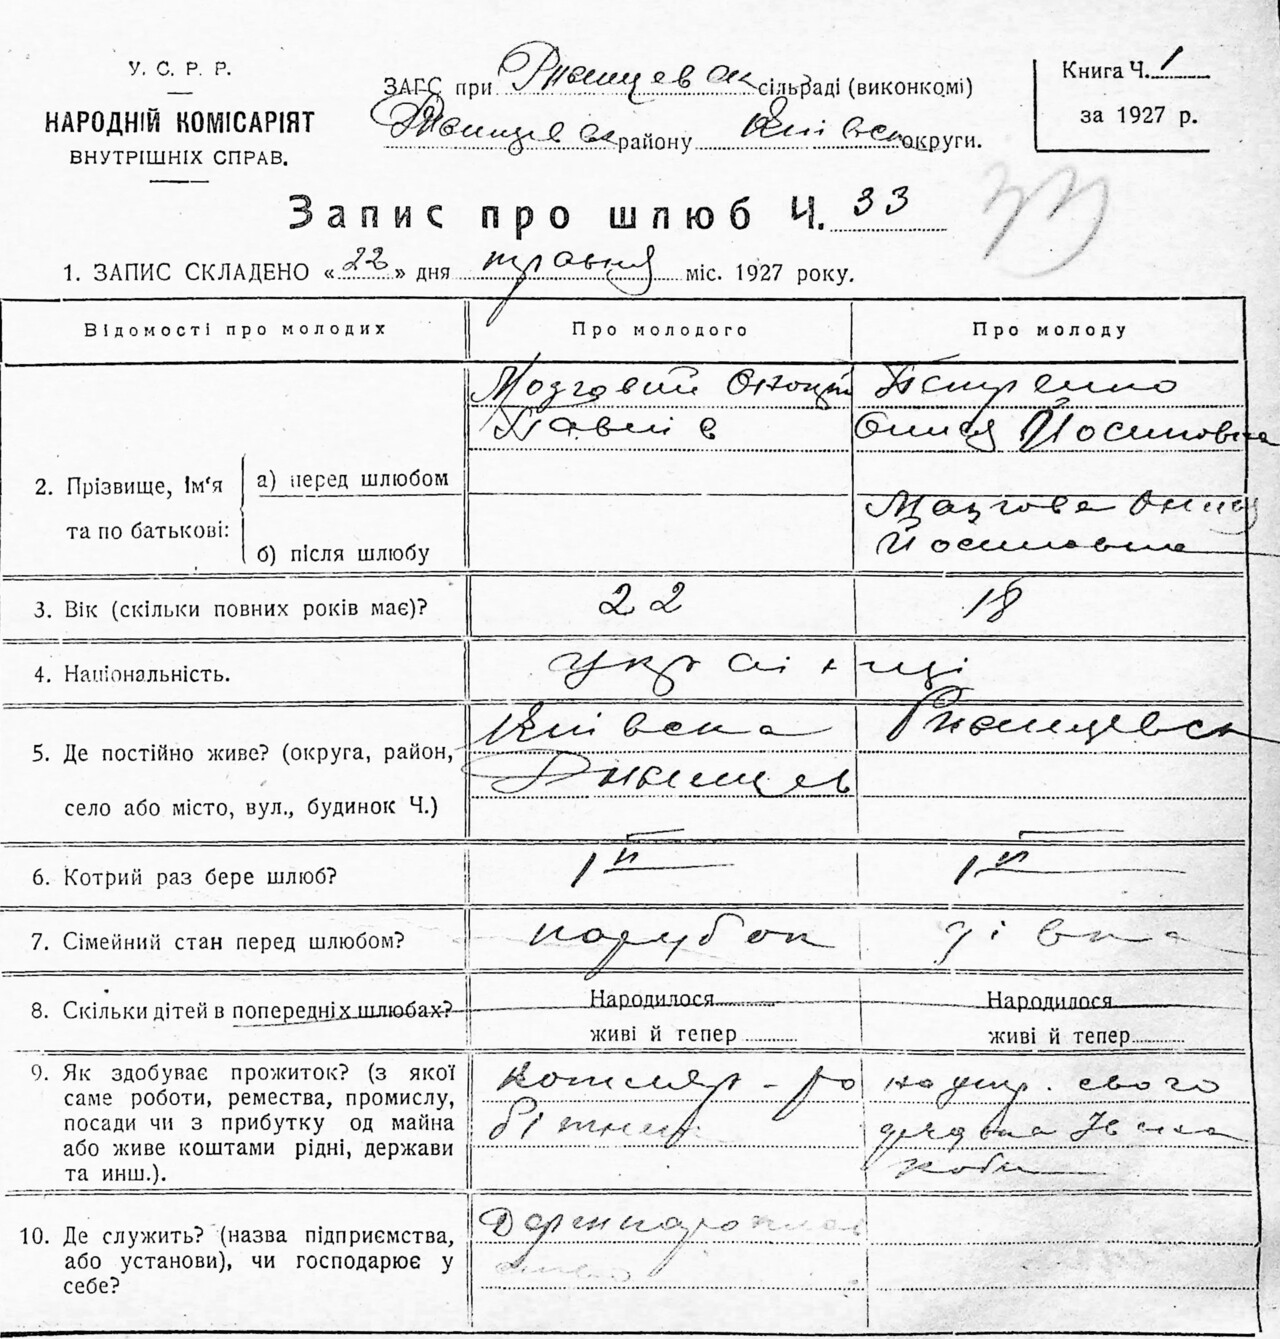 У. С. Р. Р.
НАРОДНІЙ КОМІСАРІЯТ
ВНУТРІШНІХ СПРАВ.
ЗАГС при Ржищевск сільраді (виконкомі)
Ржищевск району Київськ округи.
Книга Ч. 1
за 1927 р.
Запис про шлюб Ч. 33
33
1. ЗАПИС СКЛАДЕНО «22» дня травня міс. 1927 року.
Відомості про молодих
Про молодого
Про молоду
2. Прізвище, Ім'я та по батькові:
а) перед шлюбом
Мозговий
Павлів
Петренко
Йосиповна
б) після шлюбу
Мозгова
Йосиповна
3. Вік (скільки повних років має)?
22
18
4. Національність.
українці
5. Де постійно живе? (округа, район,
село або місто, вул., будинок Ч.)
Київська
Ржищев
Ржищевськ
6. Котрий раз бере шлюб?
1й
1й
7. Сімейний стан перед шлюбом?
парубок
дівка
8. Скільки дітей в попередніх шлюбах?
Народилося
живі й тепер
Народилося
живі й тепер
9. Як здобуває прожиток? (з якої
саме роботи, ремества, промислу,
посади чи з прибутку од майна
або живе коштами рідні, держави
та инш.).
котляр - ро
бітник
на утр. свого
10. Де служить? (назва підприємства,
або установи), чи господарює у
себе?